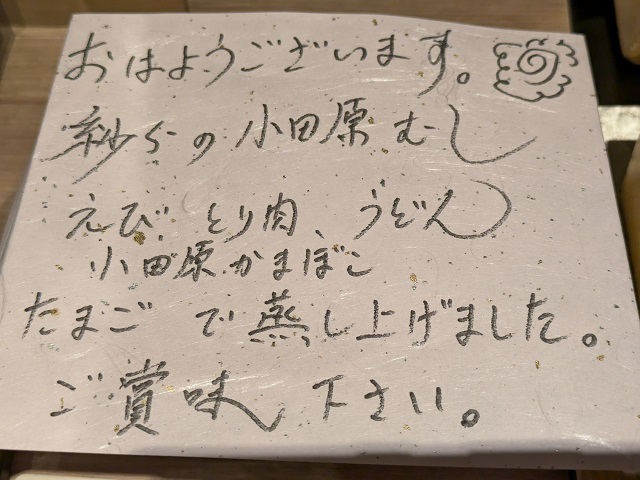 おはようございます。
紗らの小田原むし
えび、とり肉、うどん
小田原かまぼこ
たまごで蒸し上げました。
ご賞味下さい。